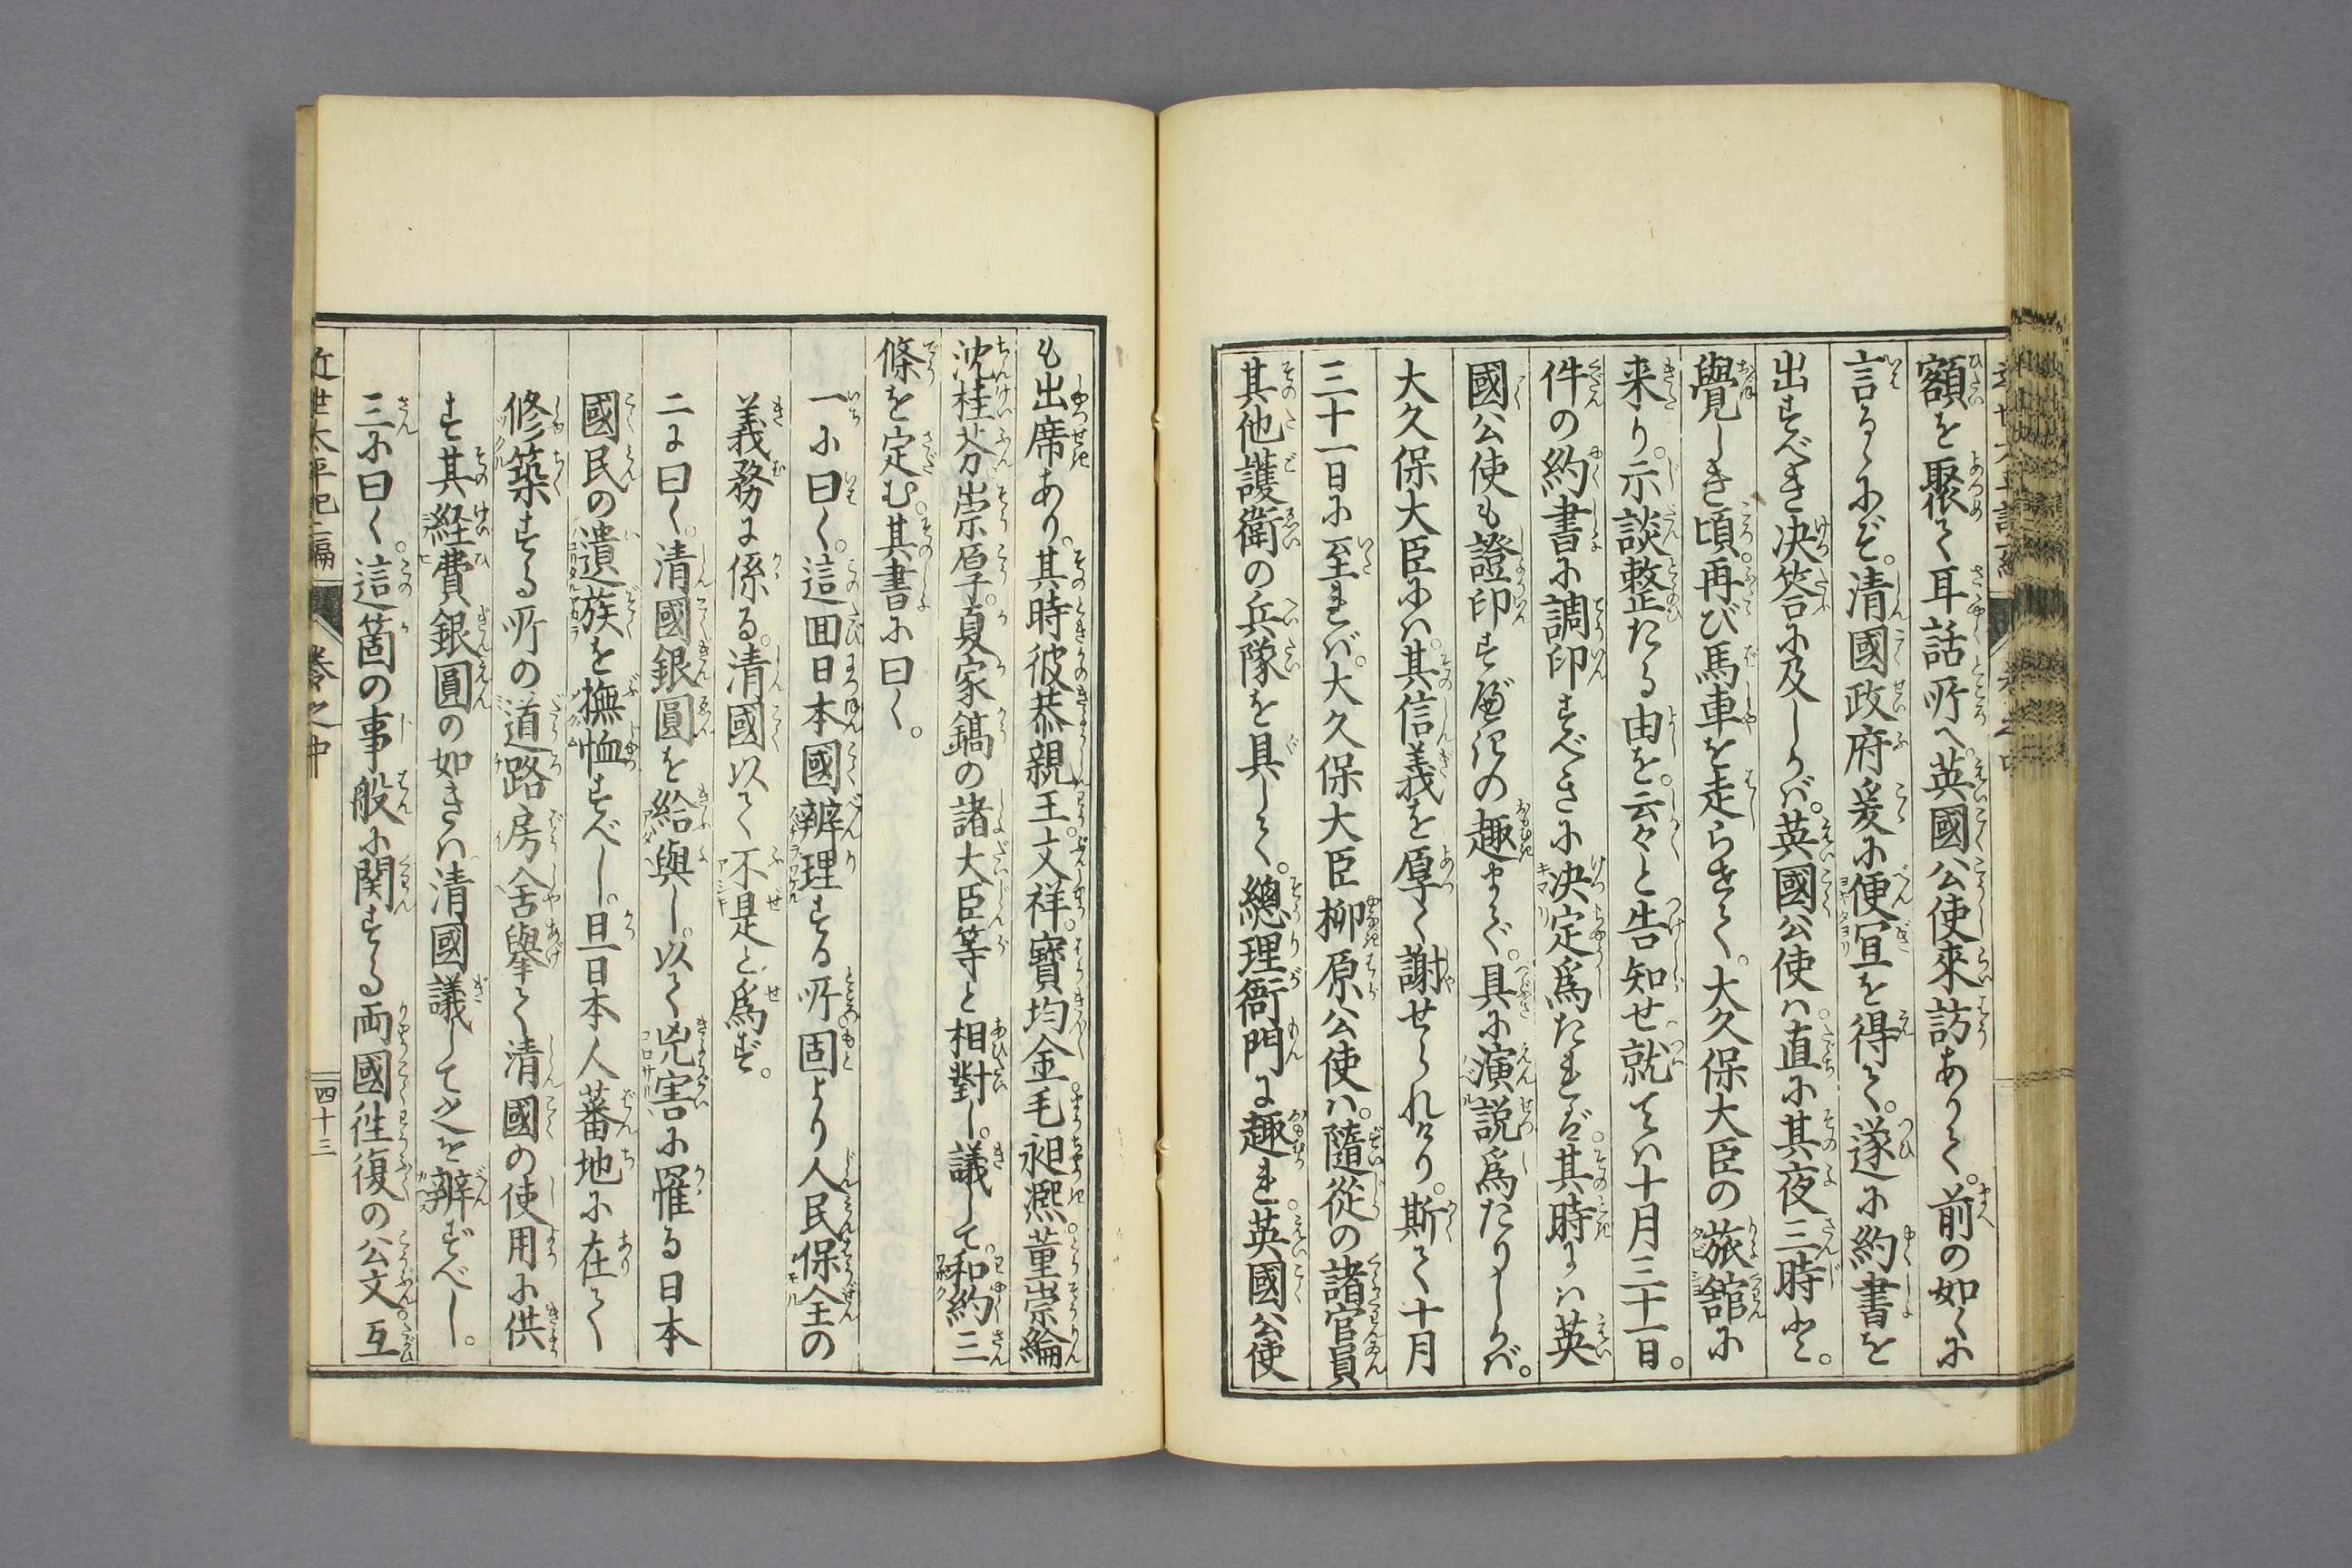 額を聚て耳話所へ。英國公使來訪ありて。前の如くに
言るゝにぞ。清國政府爰に便宜を得て。遂に約書を
出すべき决答に及しかバ。英國公使ハ直に其夜三時
覺しき頃。再び馬車を走らせて。大久保大臣の旅舘に
来り。示談整たる由を。云々と告知せ就てハ十月三十一日。
件の約書に調印すべきに决定爲たれバ。其時にハ英
國公使も證印すべきの趣まで。具に演説爲たりしかバ。
大久保大臣にハ。其信義を厚く謝せられけり。斯て十月
三十一日に至れバ。大久保大臣柳原公使ハ。隨從の諸官員
其他護衛の兵隊を具して。總理衙門に趣れ。英國公使
も出席あり。其時彼恭親王。文祥。寳均金。毛昶凞。董崇綸
沈桂芬。崇厚。夏家鎬の諸大臣等と相對し。議して。和約三
條を定む。其書に曰く。
一に曰く。這囬日本國辨理する所。固より人民保全の
義務に係る。清國以て不是と爲ず。
二に曰く。清國銀圓を給與し。以て兇害に罹る日本
國民の遺族を撫恤すべし。且日本人蕃地に在て
修築する所の道路房舎擧て清國の使用に供
す其経費銀圓の如きハ清國議して之を辨ずべし。
三に曰く。這箇の事般に関する両國徃復の公文。互
近世太平記二編
卷之中
四十三